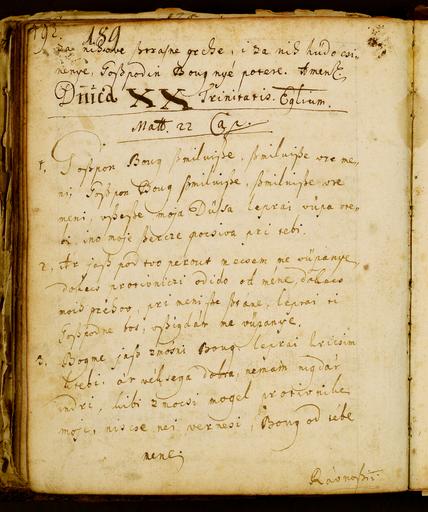 192.
189
za nihove strasne grehe, i za nih hudo csi-
nenye, Goszpodin Boug nyé potere. Amen.
Dnica XX Trinitatis. Eglium.
Matt. 22 Cap.
1. Goszpon Boug szmiluisze, szmiluisze vre me-
ni, Goszpon Boug szmiluisze, szmiluisze vre
meni, moja Dusa leprai vüpa vte-
bi, ino moje szercze pocsiva pri tebi.
2. Ar jasz pod tvo perout mecsem me vüpanye,
dokecs protivnicri odido od méne, dokecs
pri meni stane, leprai ti
Goszpodne tos, vszigdár me vüpanye.
3. Bogme jasz zmosni Boug leprai kricsim
k tebi, ár véksega dobra, nemam nigdár
indri, kibi zmocsi mogel protivnike
moje, niscse nei vernesi, Boug od tébe
meni.
Rávnoszti